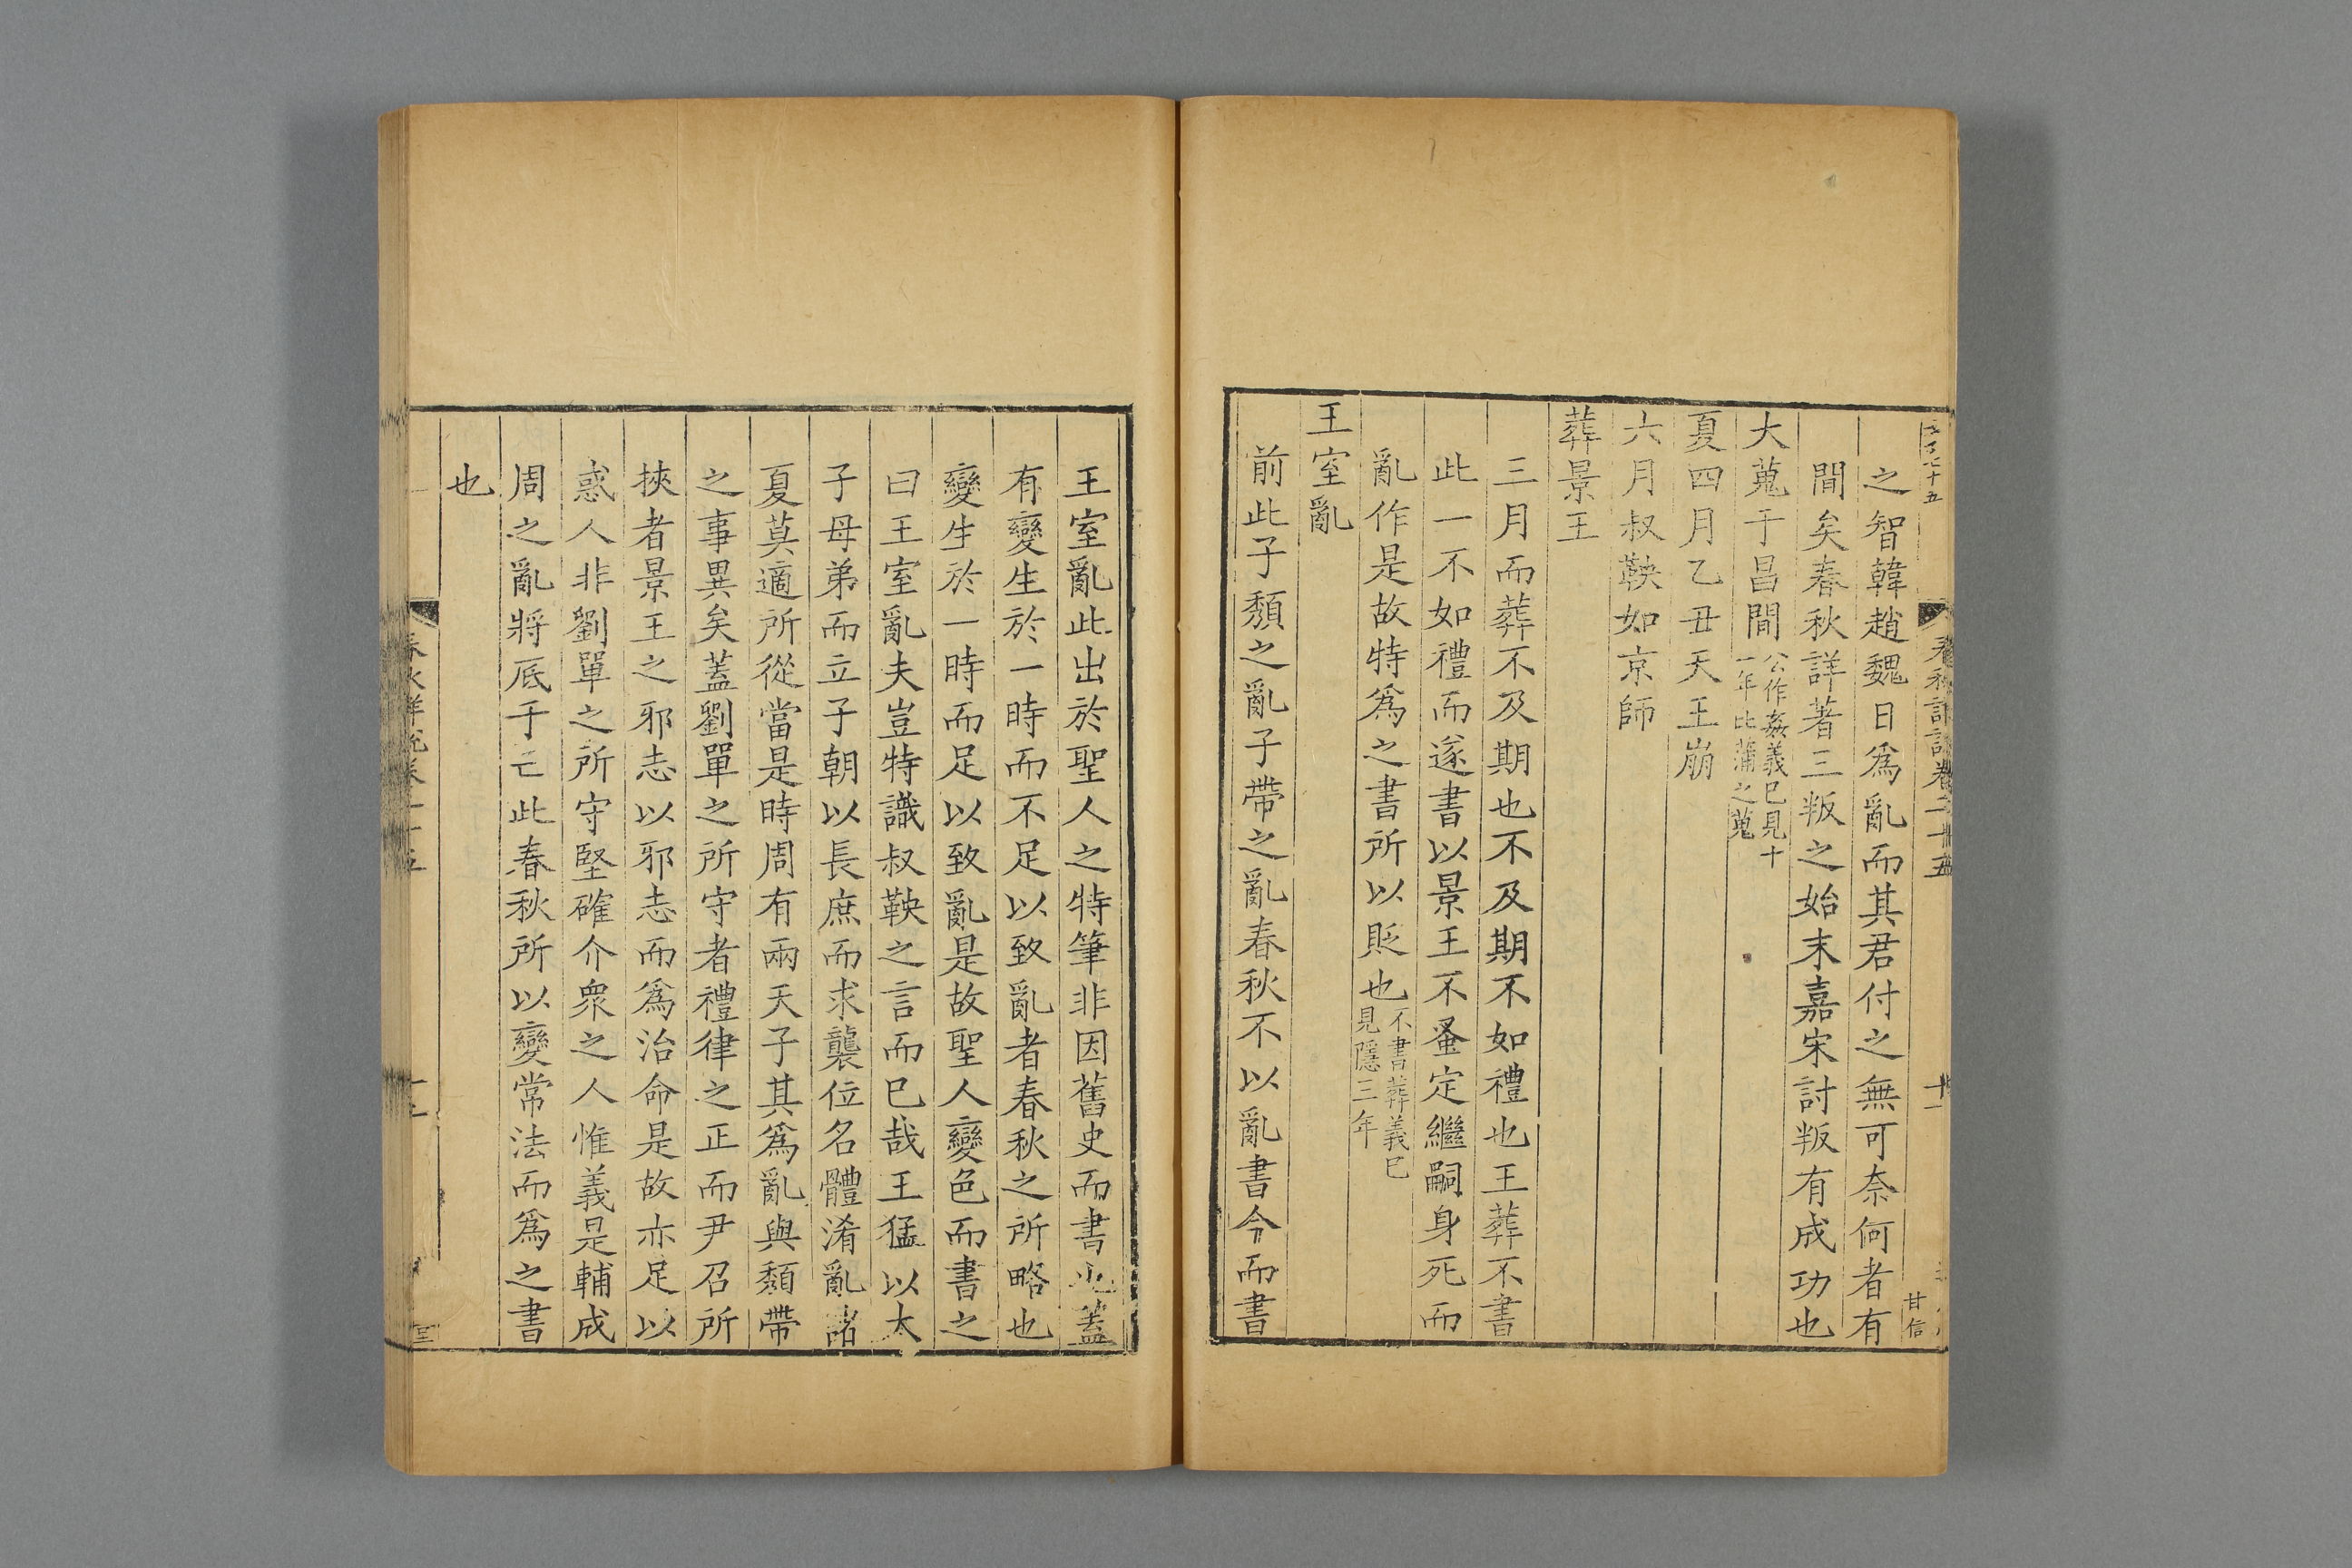 之智韓趙魏日爲亂而其君付之無可奈何者有
間矣春秋詳著三叛之始末嘉宋討叛有成功也
大蒐于昌間公作姦義已見十
一年比蒲之蒐
夏四月乙丑天王崩
六月叔鞅如京師
葬景王
三月而葬不及期也不及期不如禮也王葬不書
此一不如禮而遂書以景王不蚤定繼嗣身死而
亂作是故特爲之書所以貶也不書葬義已
見隱三年
王室亂
前此子頽之亂子帶之亂春秋不以亂書今而書
王室亂此出於聖人之特筆非因舊史而書也蓋
有變生於一時而不足以致亂者春秋之所略也
變生於一時而足以致亂是故聖人變色而書之
曰王室亂夫豈特識叔鞅之言而已哉王猛以太
子母弟而立子朝以長庶而求襲位名體淆亂諸
夏莫適所從當是時周有兩天子其爲亂與頽帶
之事異矣蓋劉單之所守者禮律之正而尹召所
挾者景王之邪志以邪志而爲治命是故亦足以
惑人非劉單之所守堅確介衆之人惟義是輔成
周之亂將底于亡此春秋所以變常法而爲之書
也